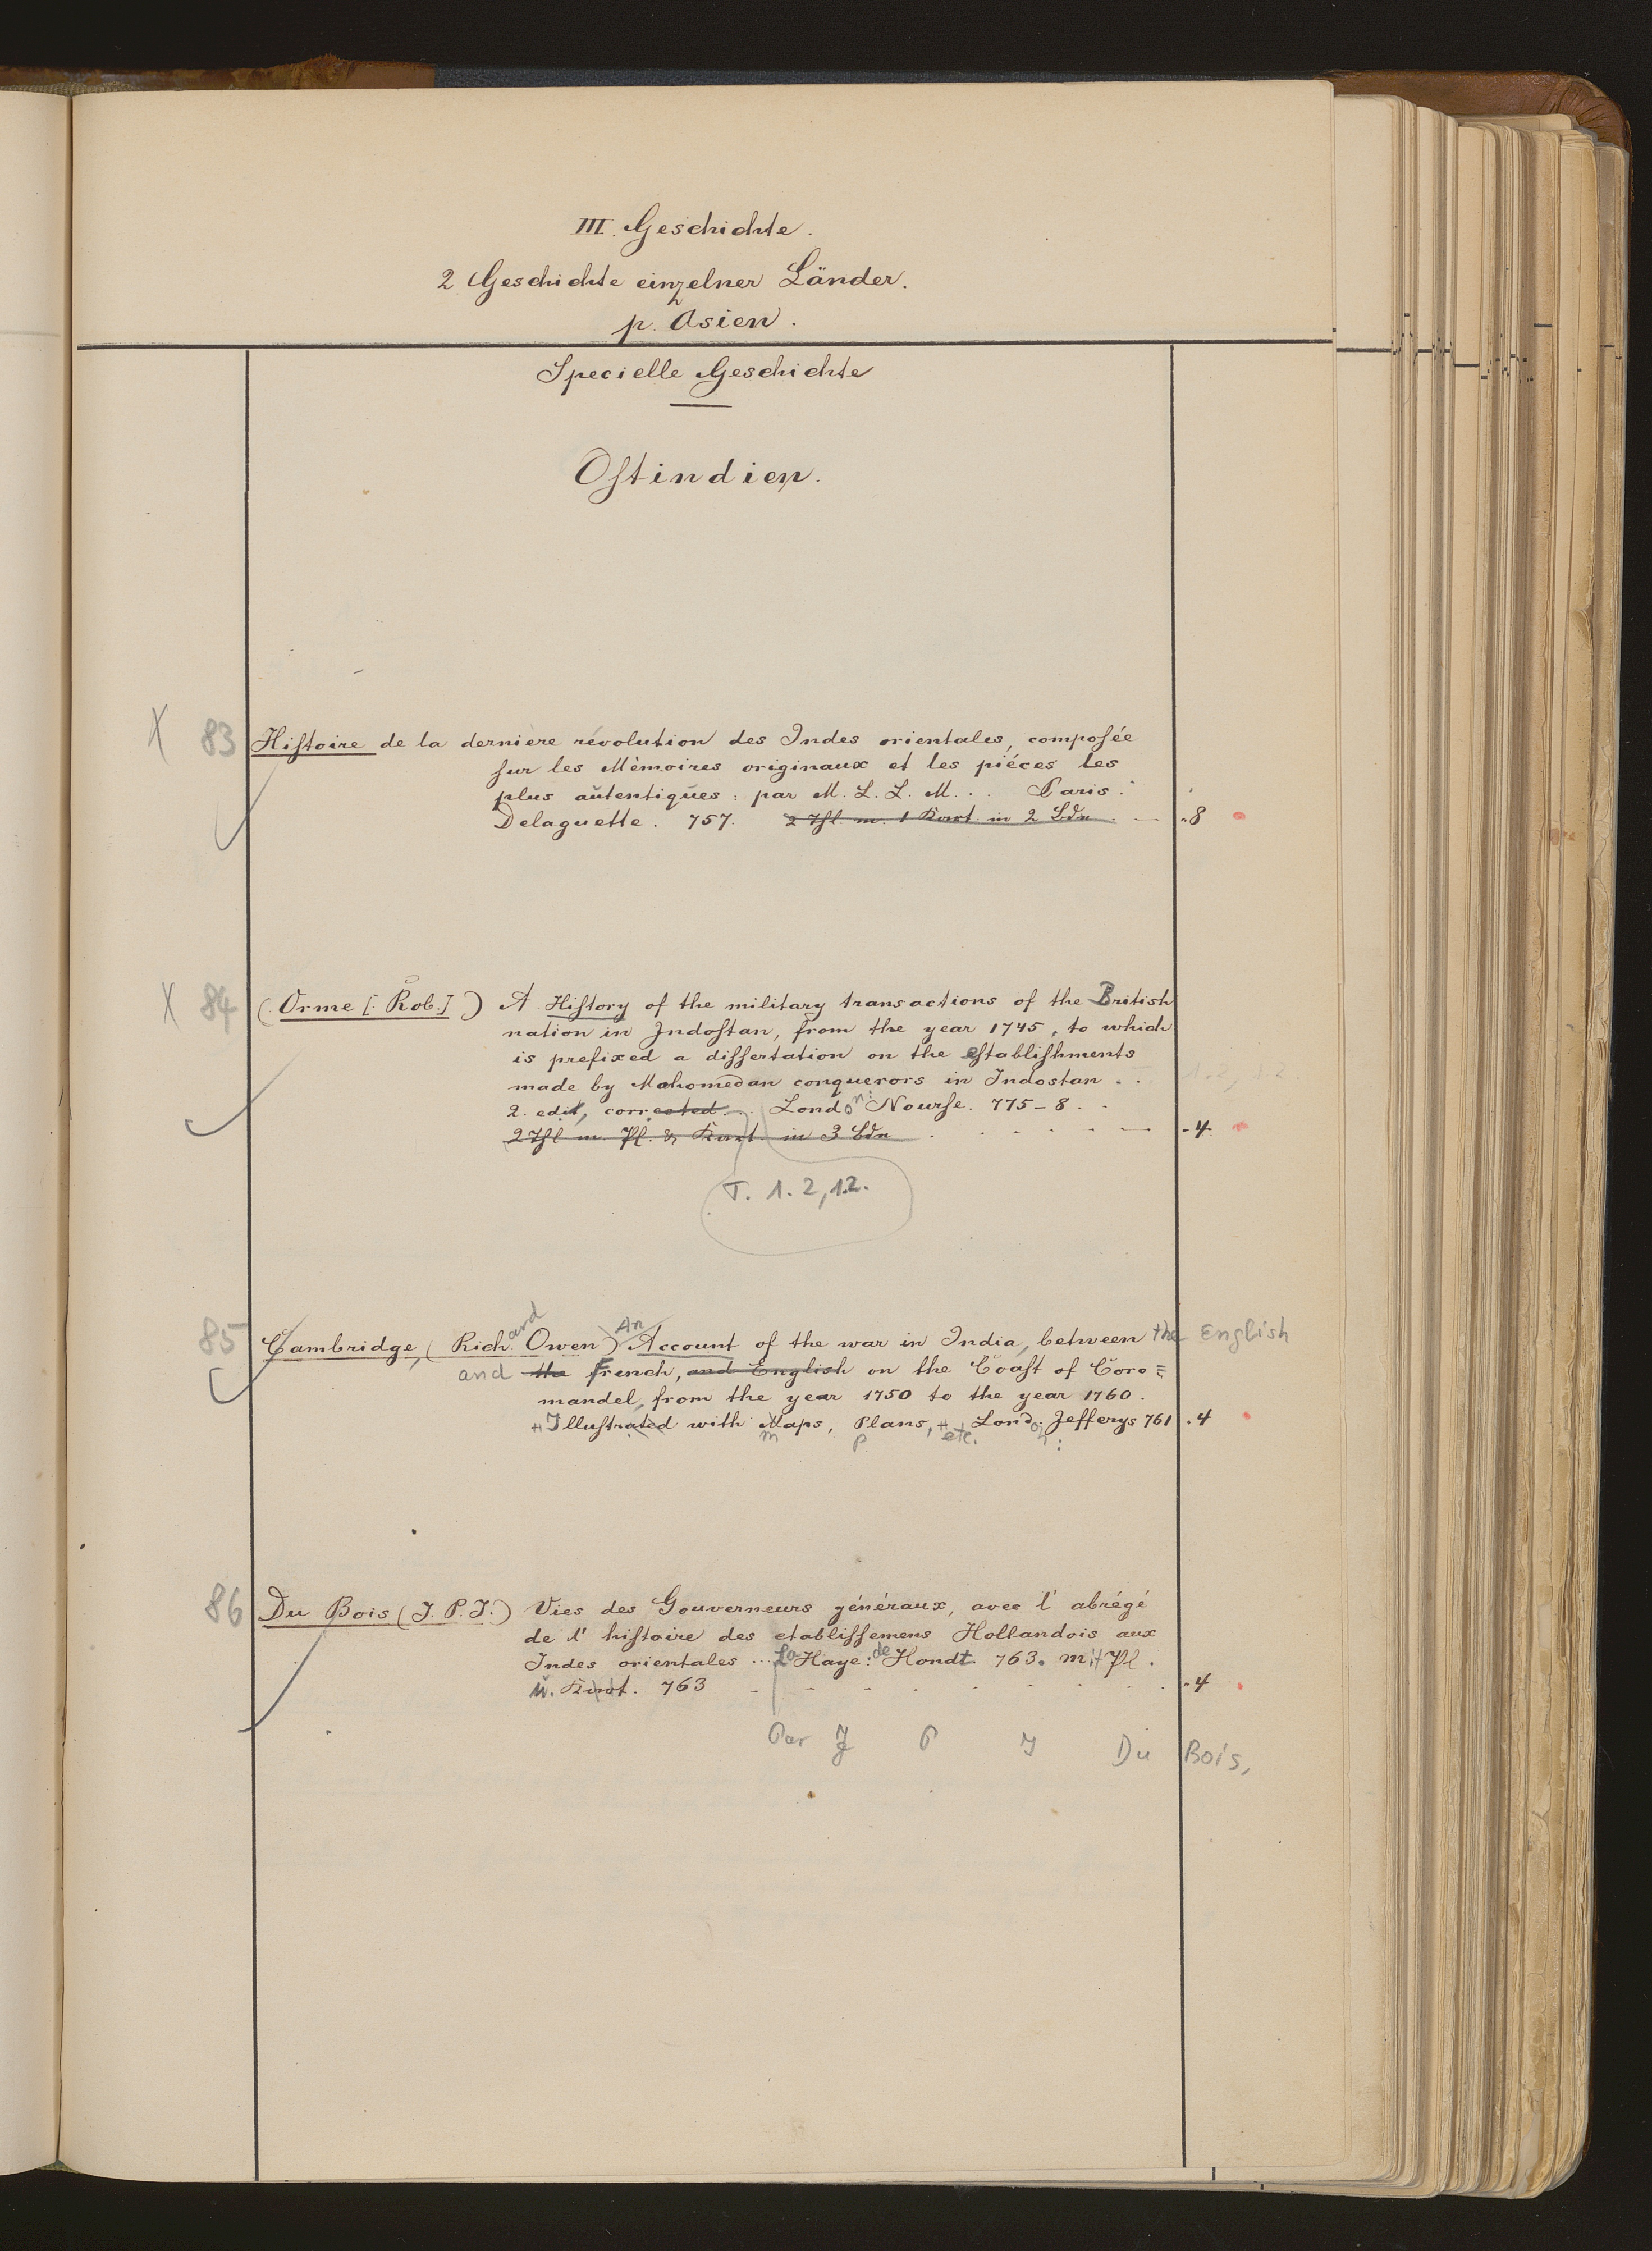 III. Geschichte.
2 Geschichte einzelner Länder.
p. Asien.
Specielle Geschichte
Ostindien.
X 83 Histoire de la derniere révolution des Indes orientales, composée
sur les Mèmoires originaux et les piéces les
plus autentiques: par M. L. L. M... Paris:
Delaguette. 757. 2 Thl. m. 1 Kart. in 2 Bdn. — 8
X 84 (Orme [: Rob.]) A History of the military transactions of the British
nation in Indostan, from the year 1745, to which
is prefixed a dissertation on the establishments
made by Mahomedan conquerors in Indostan . .
2. edit, corrected... London: Nourse. 775-8. .
2 Thl m. Pl. & Kart. in 3 Bdn - 4
T. 1. 2, 1.2.
85 Cambridge, (Rich. and Owen) An Account of the war in India, between the English
and the French, and English on the Coast of Coro=
mandel, from the year 1750 to the year 1760.
Illustrated with Maps, Plans, etc. London: Jefferys 761 . 4
m p
86 Du Bois (J. P. J.) Vies des Gouverneurs généraux, avec l' abrégé
de l' histoire des etablissemens Hollandois aux
Indes orientales ... La Haye: de Hondt. 763. mit Pl.
u. Kart. 763 - 4
Par J P J Du Bois,